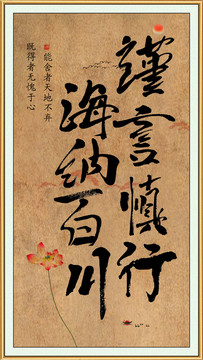 谨言慎行
海纳百川
能舍者天地不弃
既得者无愧于心